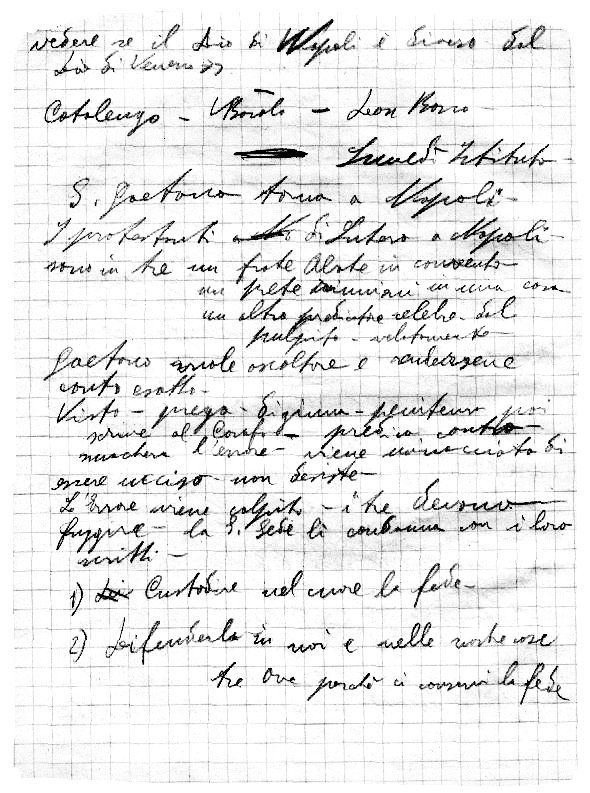 vedere se il Dio di Napoli è diverso dal
Dio di Venezia
Cotolengo - - Don Bosco
Lunedì Istituto
S. Gaetano torna a Napoli -
I protestanti di Lutero a Napoli -
sono in tre un frate Abate in convento
un prete in una casa
un altro predicatore celebre dal
pulpito - velatamente
Gaetano vuole ascoltare e rendersene
conto esatto -
Visto - prega - digiuna - penitenza poi
scrive al Carafa - predica contro -
smaschera l'errore - viene minacciato di
essere ucciso non desiste -
L'Errore viene colpito - i tre devono
fuggire - la S. Sede li condanna con i loro
scritti -
1) Custodire nel cuore la fede -
2) Difenderla in noi e nelle nostre case
tre Ave perchè ci conservi la fede